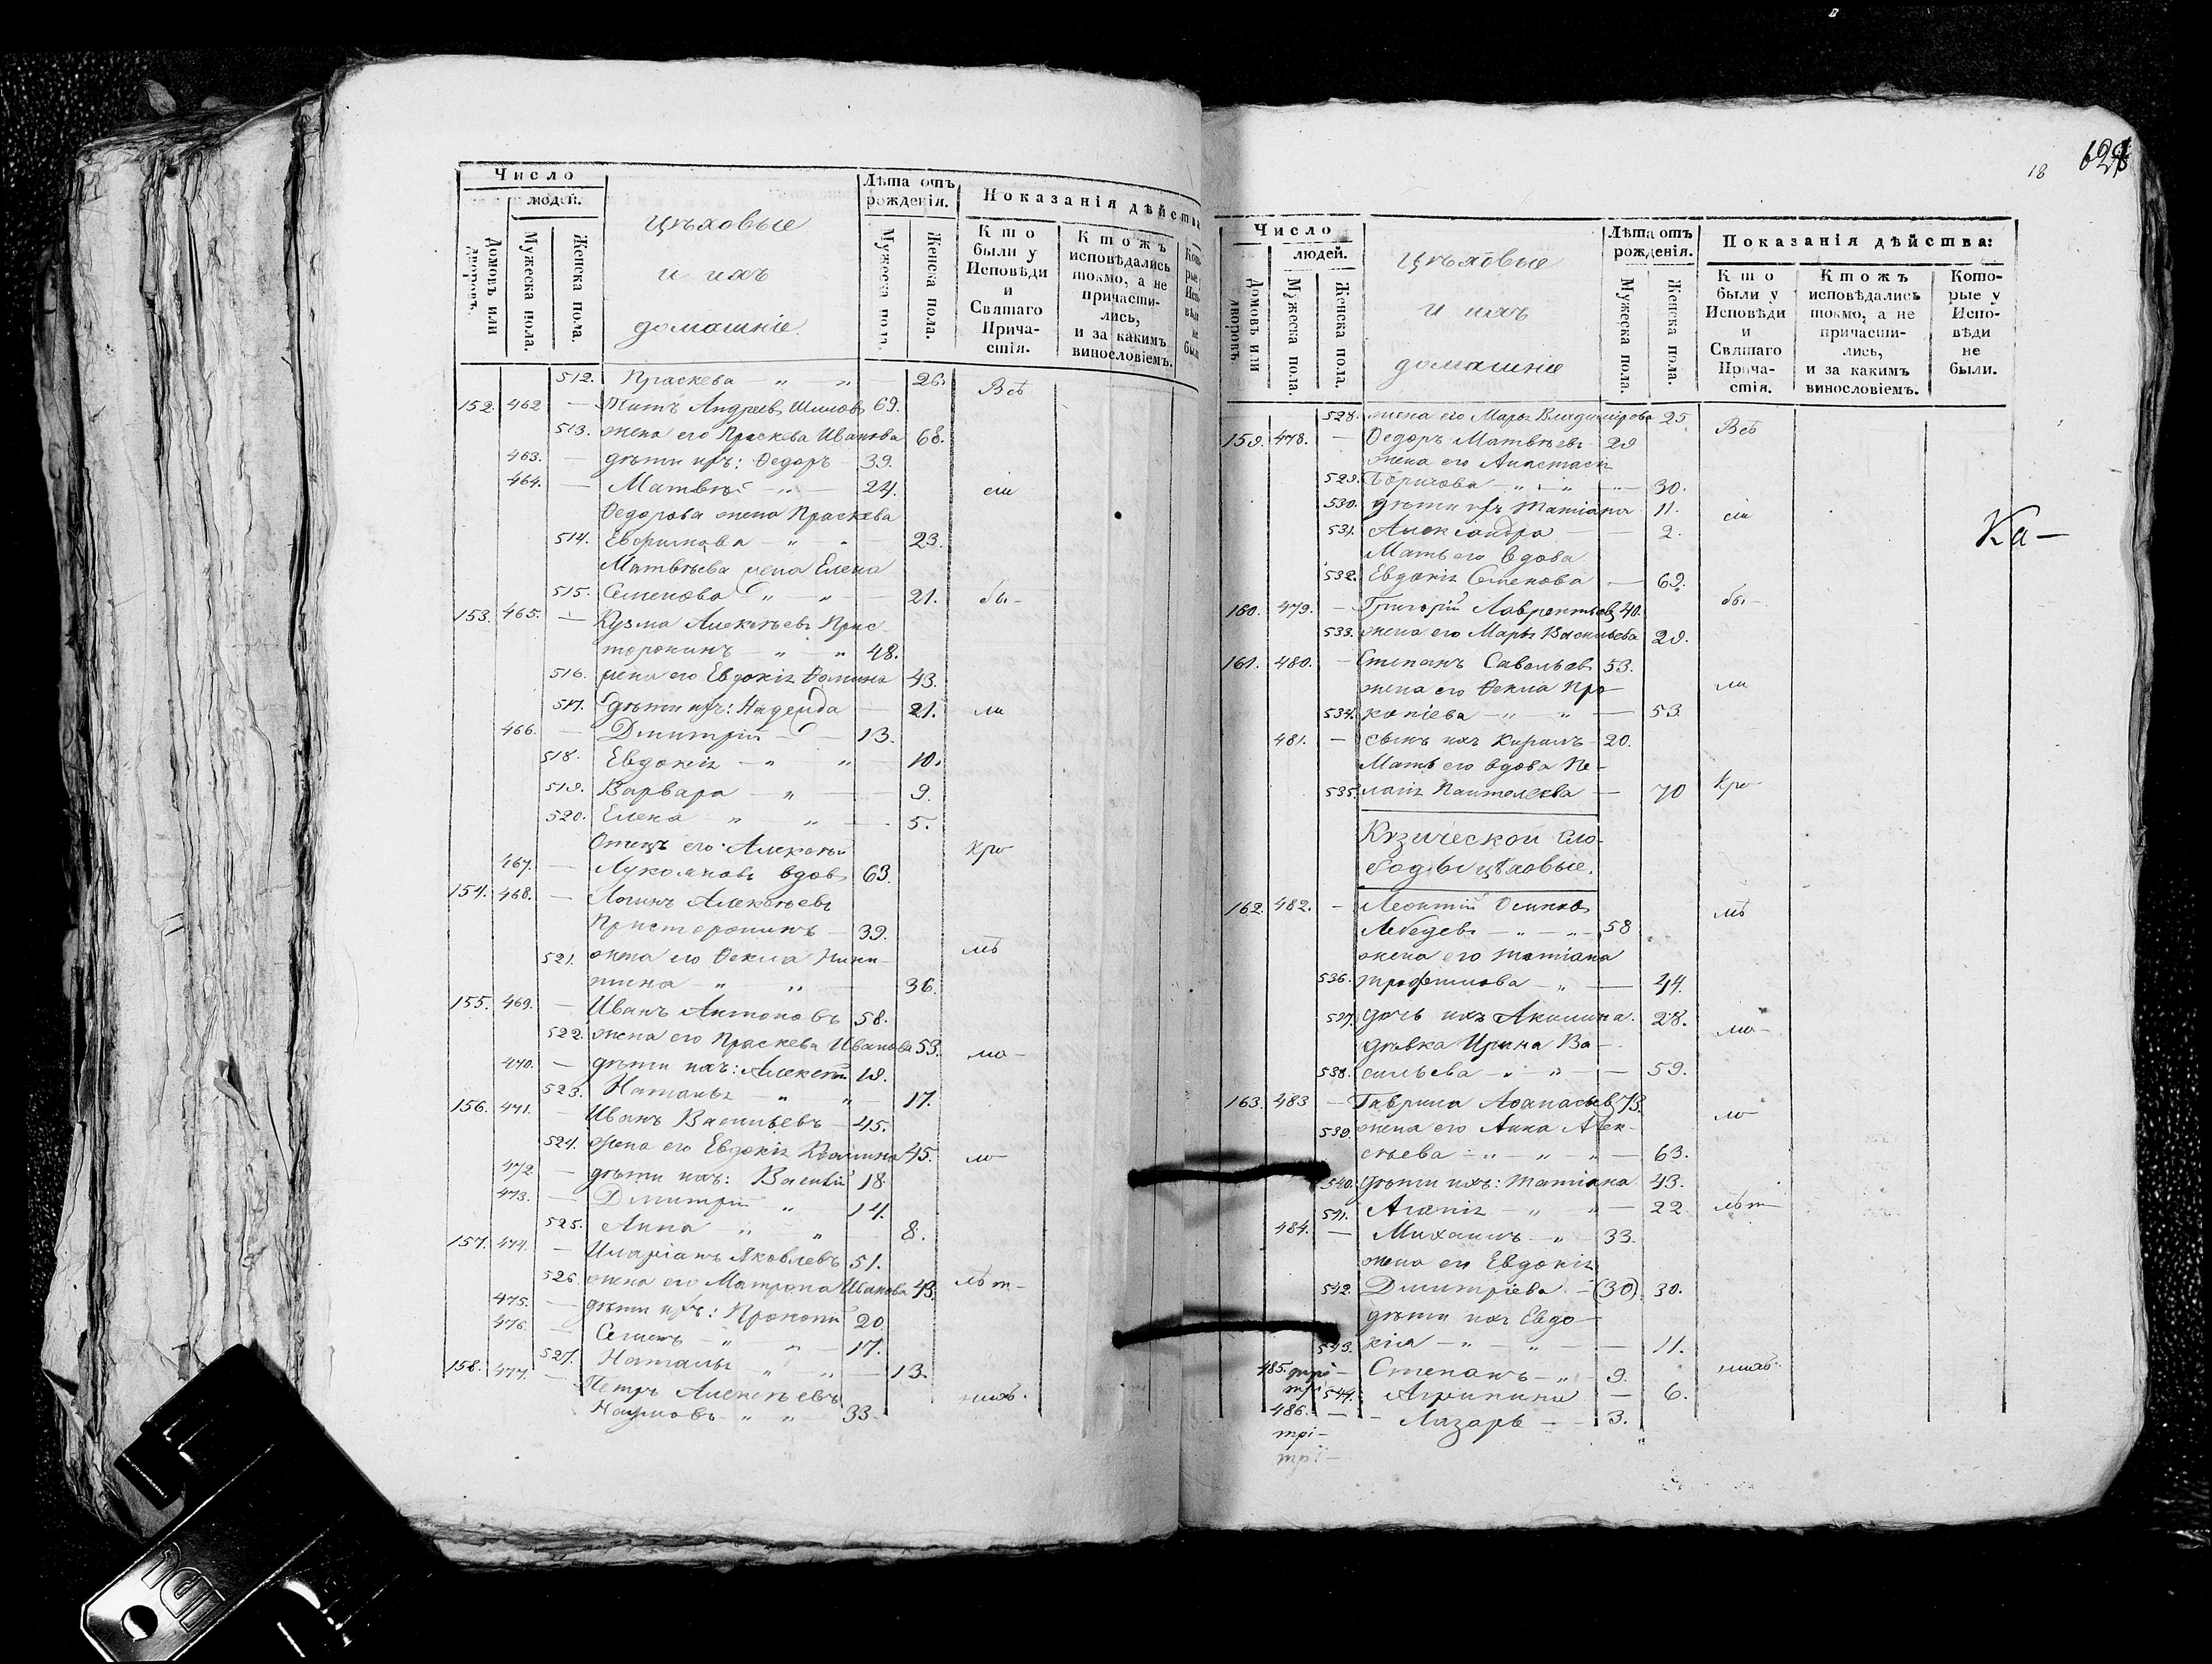 Число
людей.
Домовъ или дворовъ.
Мужеска пола.
Женска пола.
Цѣховые
и ихъ
домашніе
Лѣта отъ рожденія.
Мужеска пола.
Женска пола.
Показанія дѣйства
Кто были у Исповѣди и Святаго Прича-стія.
Ктожъ исповѣдались токмо, а не причасти-лись, и за какимъ винословіемъ.
512. Праскева — " " — 26. Всѣ
152. 462 — Титъ Андреевъ 69.
513. жена его Праскева Иванова 68.
463. — дѣти ихъ: Ѳедоръ 39.
464. — Матвѣй — " — 24. сіи
Ѳедорова жена Праскева
514. Евфимова — " — 23.
Матвѣева жена Елена
515. Семенова — " — " — 21. бы-
153. 465. — Кузма Алексѣевъ Прис-
торонинъ — " — " 48.
516. жена его Евдокія Ѳомина 43.
517. дѣти ихъ: Надежда — 21. ли
466. — Дмитрій — 13.
518. Евдокія — " " — 10.
519. Варвара — " — 9.
520. Елена " " — 5.
Отецъ его Алексѣй кро-
467. — Лукояновъ вдовъ 63.
154. 468. — Логинъ Алексѣевъ
Присторонинъ — 39.
521. жена его Ѳекла Ники- мѣ
тина — " " — 36.
155. 469. — Иванъ Антоновъ 58.
522. жена его Праскева Иванова 53. ма-
470. — дѣти ихъ: Алексѣй 19.
523. Наталья — " " — 17.
156. 471. — Иванъ Васильевъ 45.
524. жена его Евдокія 45. ло-
472 — дѣти ихъ: Василій 18
473. — Дмитрій " — 14.
525. Анна " " — 8.
157. 474. — Иларіонъ Яковлевъ 51.
526. жена его Матрона Иванова 43. лѣт-
475. — дѣти ихъ: Прокопій 20
476. — Семенъ — " " — 17.
527. Наталья — " " — 13.
158. 477. — Петръ Алексѣевъ
Наумовъ — " " 33. нихъ.
18
Число
людей.
Домовъ или дворовъ.
Мужеска пола.
Женска пола.
Цѣховые
и ихъ
домашніе
Лѣта отъ рожденія.
Мужеска пола.
Женска пола.
Показанія дѣйства:
Кто были у Исповѣди и Святаго Прича-стія.
Ктожъ исповѣдались токмо, а не причасти-лись, и за какимъ винословіемъ.
Кото-рые у Испо-вѣди не были.
528. жена его Марья Владимірова 25. Всѣ
159. 478. — Ѳедоръ Матвѣевъ 29
жена его Анастасія
529. Борисова — " — " — 30.
530. дѣти ихъ Татіана 11. сіи
531. Александра — — 2.
Мать его вдова
532. Евдокія Семенова — 69.
160. 479. — Григорій Лаврентьевъ 40. бы-
533. жена его Марья Васильева 29.
161. 480. — Степанъ Савельевъ 53.
жена его Ѳекла Про- ли
534. копіева — " — " — 53.
481. — сынъ ихъ Кирилъ 20.
Мать его вдова Пе-
535. лагія Пантелеева — 70 кро-
Ка-
Кизической Сло-
боды цѣховые.
162. 482. — Леонтій Осиповъ мѣ
Лебедевъ — " — " — 58
жена его Татіана
536. Трофимова — " — 44.
537. дочь ихъ Акилина. 28.
дѣвка Ирина Ва- ма-
538. сильева — " — " — 59.
163. 483 — Гаврила Аѳанасьевъ 73.
539. жена его Анна Алек- ло-
сѣева — " — " — " — 63.
540. дѣти ихъ: Татіана 43.
541. Агапія — " " — 22. лѣт-
484. — Михаилъ — " — 33.
жена его Евдокія
542. Дмитріева — (30). 30.
дѣти ихъ Евдо-
543. кія — " — " — 11.
485. — Степанъ — " — 9. нихъ.
544. Агрипина — 6.
486. — — Лазарь — — 3.